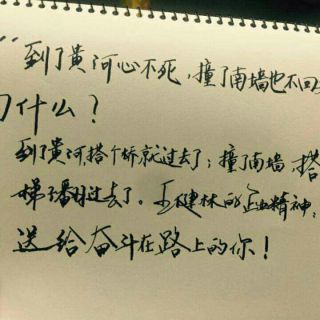 "到了黄河心不死，撞了南墙也不回
什么？
到了黄河搭个桥就过去了；撞了南墙，搭
梯子翻过去了。王健林的企业精神，
送给奋斗在路上的你！